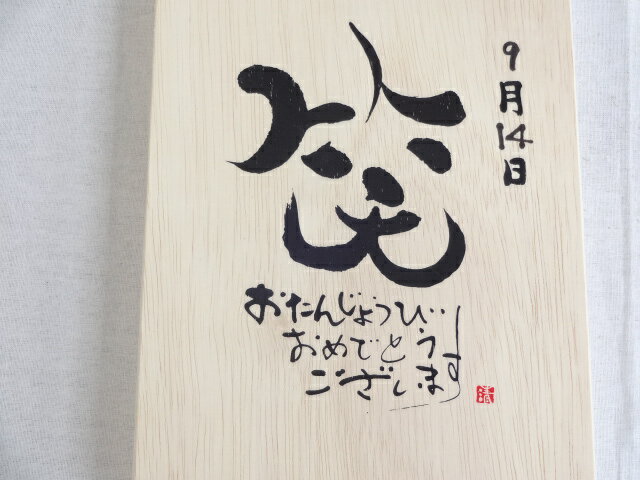 9月14日
笑
おたんじょうび
おめでとう
ございます